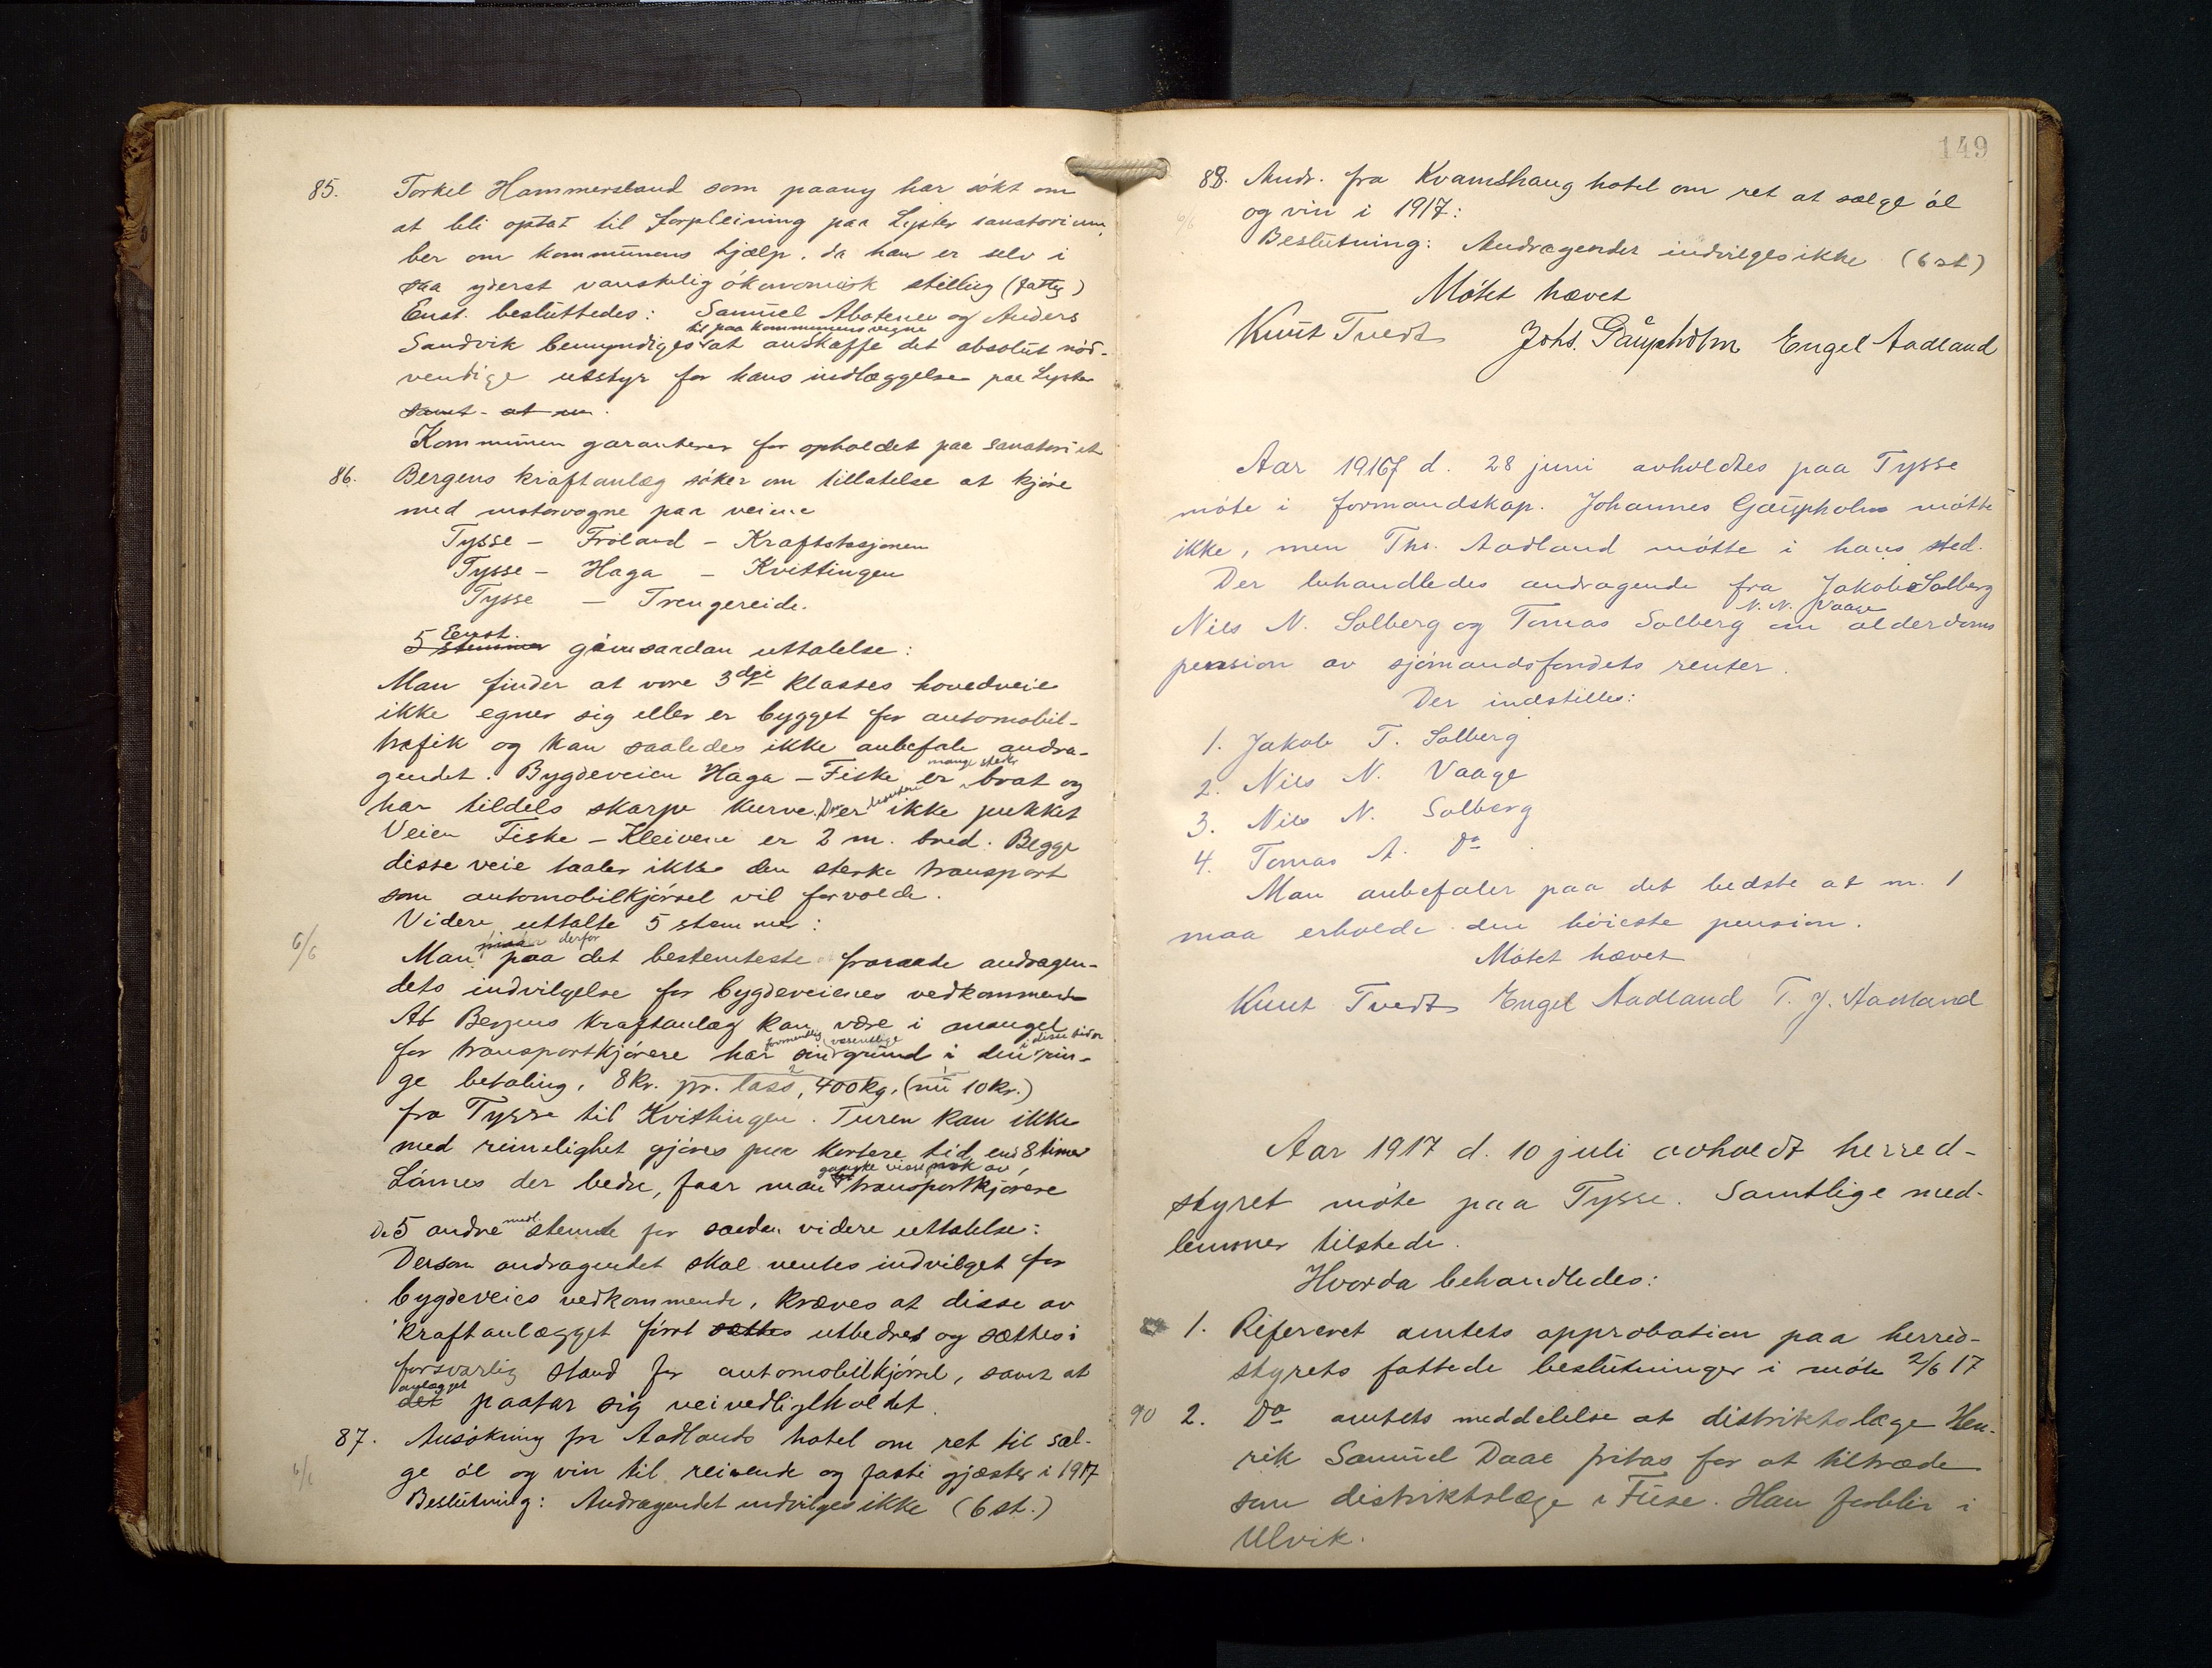 85. Torkel Hammersland som paany har søkt om
at bli optat til forpleining paa Lyster sanatorium,
ber om kommunens hjælp, da han er selv i
saa yderst vanskelig økonomisk stilling (fattig)
Enst. besluttedes: Samuel Aboteneu og Anders
til paa kommunens vegne
Sandvik bemyndiges at anskaffe det absolut nød-
vendige utstyr for hans indlæggelse paa Lyster
samt - at
Kommunen garanterer for opholdet paa sanatoriet
86. Bergens kraftanlæg søker om tillatelse at kjøre
med motorvogne paa veiene
Tysse - Frøland - Kraftstasjonen
Tysse - Haga - Kvittingen
Tysse - Trengereide.
Eenst.
5 stemmer gav saadan uttalelse:
Man finder at vore 3dje klasses hovedveie
ikke egner sig eller er bygget for automobil-
trafik og kan saaledes ikke anbefale andra-
gendet. Bygdeveien Haga - Fiske er mange steder brat og
har tildels skarpe kurver. Den er desuten ikke pukket
Veien Fiske - Kleivene er 2 m. bred. Begge
disse veie taaler ikke den sterke transport
som automobilkjørsel vil forvolde.
Videre uttalte 5 stemmer:
6/6 Man maa derfor paa det bestemteste fraraade andragen-
dets indvilgelse for bygdeveienes vedkommende
At Bergens kraftanlæg kan være i mangel
for transportkjørere har formentlig sin væsentlige grund i den i disse tider rin-
ge betaling, 8 kr. pr. lass, 400 kg. (nu 10 kr.)
fra Tysse til Kvittingen. Turen kan ikke
med rimelighet gjøres paa kortere tid end 8 timer
Lønnes der bedre, faar man ganske visst nok av transportkjørere
De 5 andre medl. stemte for saadan videre uttalelse:
Dersom andragendet skal ventes indvilget for
bygdeveies vedkommende, kræves at disse av
kraftanlægget først sættes utbedret og sættes i
forsvarlig stand for automobilkjørsel, samt at
anlægget
det paatar sig veivedlikeholdet.
87. Ansøkning fra Aadlands hotel om ret til sæl-
6/6 ge øl og vin til reisende og faste gjæster i 1917
Beslutning: Andragendet indvilges ikke (6 st.)
149
88. Andr. fra Kvamshaug hotel om ret at sælge øl
6/6 og vin i 1917:
Beslutning: Andragendet indvilges ikke (6 st)
Møtet hævet
Knut Tvedt Johs. Gaupholm Engel Aadland
Aar 19167 d. 28 juni avholdtes paa Tysse
møte i formandskap. Johannes Gaupholm møtte
ikke, men Ths. Aadland møtte i hans sted.
Der behandledes andragende fra Jakob Solberg
N. N. Vaage
Nils N. Solberg og Tomas Solberg om alderdoms
pension av sjømandsfondets renter.
Der indstilles:
1. Jakob T. Solberg
2. Nils N. Vaage
3. Nils N. Solberg
4. Tomas A. Do
Man anbefaler paa det bedste at nr. 1
maa erholde den høieste pension.
Møtet hævet
Knut Tvedt Engel Aadland T. J. Aadland
Aar 1917 d. 10 juli avholdt herred-
styret møte paa Tysse. Samtlige med-
lemmer tilstede.
Hvorda behandledes:
1. Referert amtets approbation paa herred-
styrets fattede beslutninger i møte 2/6 17
90 2. Do amtets meddelelse at distriktslæge Hen-
rik Samuel Daae fritas for at tiltræde
som distriktslæge i Fuse. Han forblir i
Ulvik.